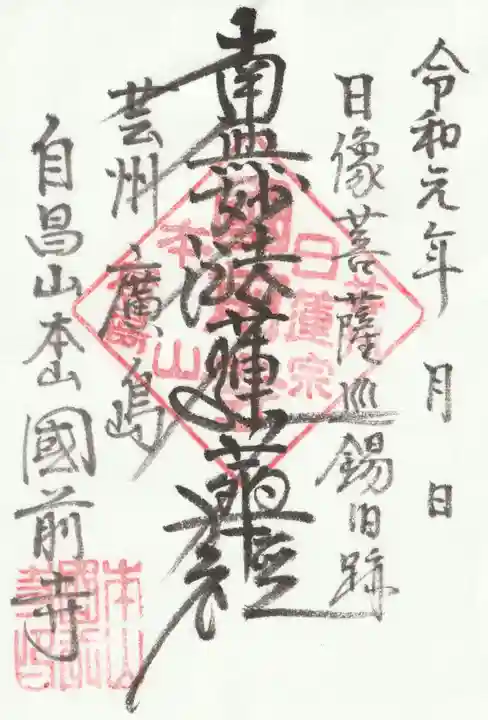 令和元年 月 日
日像菩薩巡錫旧跡
南無妙法蓮華経
芸州廣島
自昌山本山國前寺
日蓮宗
本山